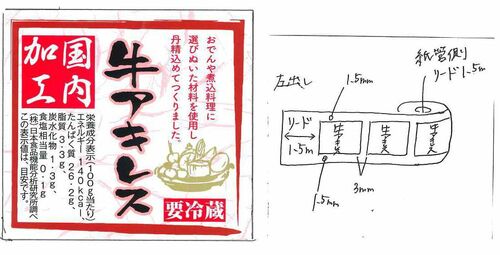 おでんや煮込料理に
選びぬいた材料を使用し
丹精込めてつくりました。
牛アキレス
国内
加工
栄養成分表示(100g当たり)
エネルギー140kcal、
たんぱく質26.2g、
脂質3.3g、
炭水化物1.3g、
食塩相当量0.1g
(株)日本食品機能分析研究所調べ
この表示値は、目安です。
要冷蔵
紙管側
リード1.5m
左出し
1.5mm
リード
1.5m
1.5mm
3mm